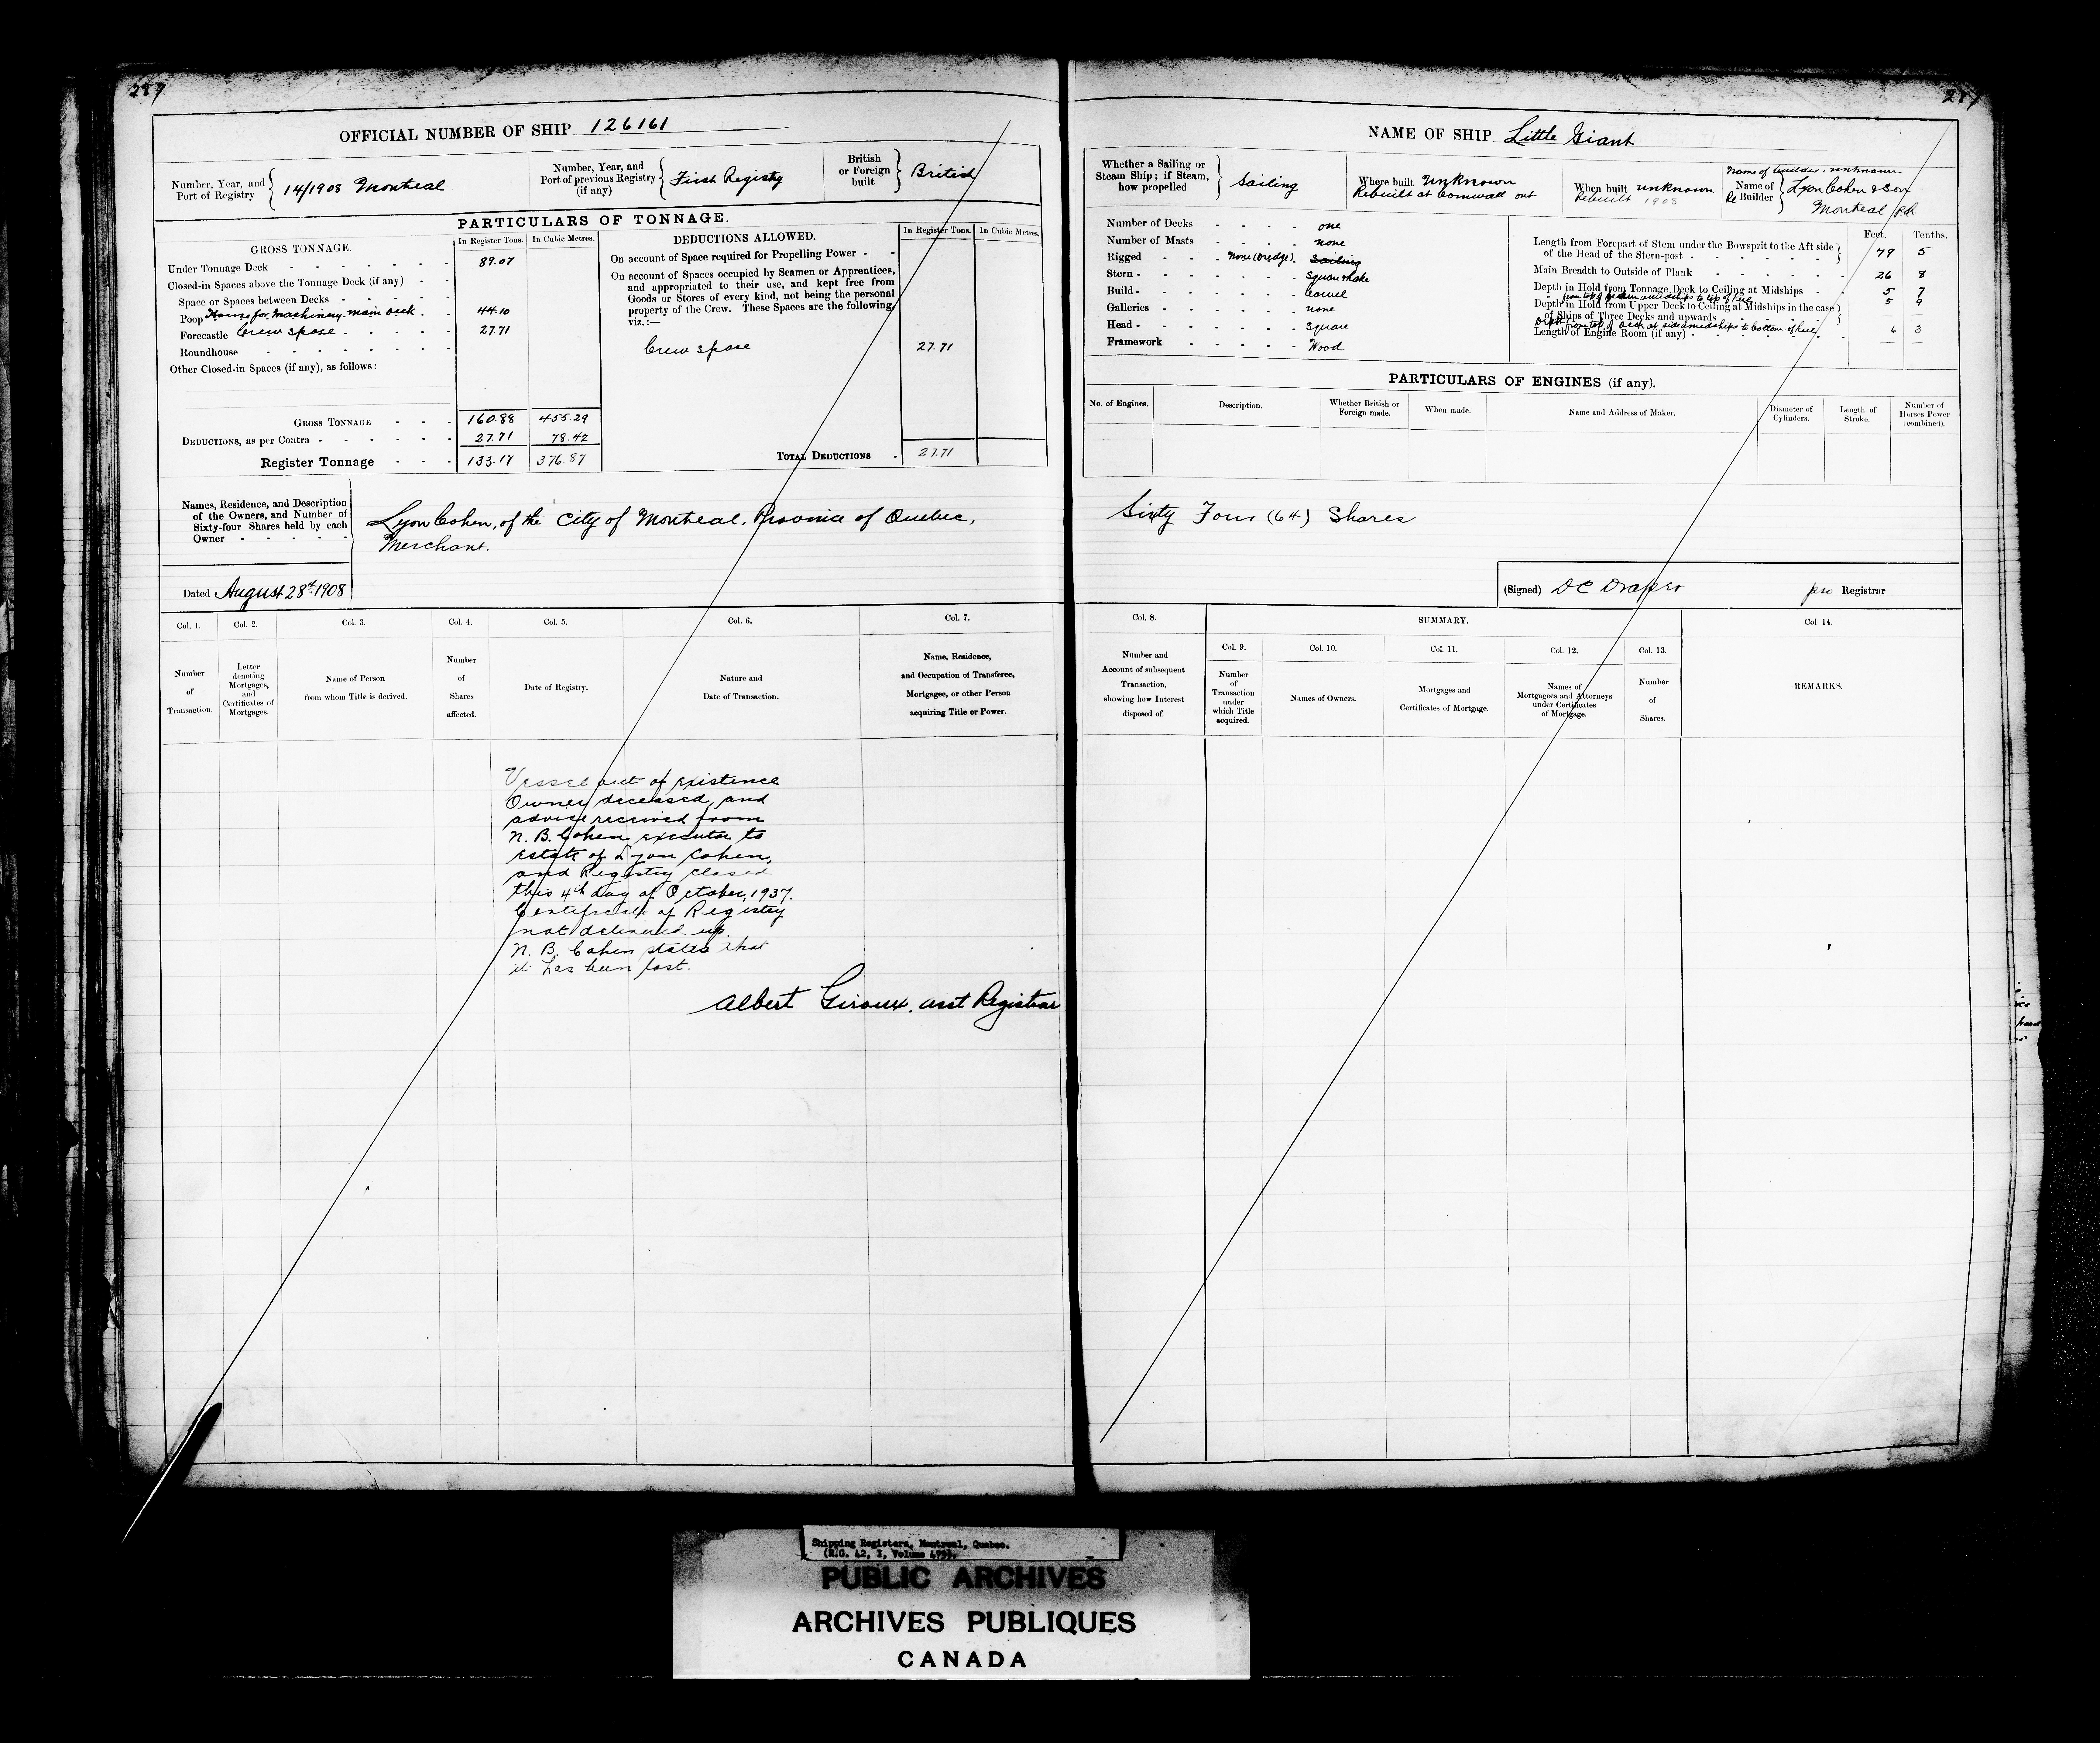 OFFICIAL NUMBER OF SHIP 126161
Number, Year, and Port of Registry 14/1908 Montreal
Number, Year, and Port of previous Registry (if any) First Registry
British or Foreign built British
PARTICULARS OF TONNAGE.
GROSS TONNAGE. In Register Tons. In Cubic Metres.
Under Tonnage Deck 89.07
Closed-in Spaces above the Tonnage Deck (if any)
Space or Spaces between Decks
Poop House for Machinery main deck 44.10
Forecastle Crew space 27.71
Roundhouse
Other Closed-in Spaces (if any), as follows:
GROSS TONNAGE 160.88 455.29
DEDUCTIONS, as per Contra 27.71 78.42
Register Tonnage 133.17 376.87
DEDUCTIONS ALLOWED. In Register Tons. In Cubic Metres.
On account of Space required for Propelling Power
On account of Spaces occupied by Seamen or Apprentices,
and appropriated to their use, and kept free from
Goods or Stores of every kind, not being the personal
property of the Crew. These Spaces are the following,
viz.:—
Crew space 27.71
TOTAL DEDUCTIONS 27.71
Names, Residence, and Description
of the Owners, and Number of
Sixty-four Shares held by each
Owner
Lyon Cohen, of the City of Montreal, Province of Quebec,
Merchant.
Dated August 28th 1908
Col. 1. Col. 2. Col. 3. Col. 4. Col. 5. Col. 6. Col. 7.
Number of Transaction.
Letter denoting Mortgages, and Certificates of Mortgages.
Name of Person from whom Title is derived.
Number of Shares affected.
Date of Registry.
Nature and Date of Transaction.
Name, Residence, and Occupation of Transferee, Mortgagee, or other Person acquiring Title or Power.
Vessel out of existence
Owner deceased, and
advice received from
N. B. Cohen executor to
estate of Lyon Cohen,
and Registry closed
this 4th day of October, 1937.
Certificate of Registry
not delivered up.
N. B. Cohen states that
it has been lost.
Albert Giroux. asst Registrar
NAME OF SHIP Little Giant
Whether a Sailing or Steam Ship; if Steam, how propelled Sailing
Where built unknown
Rebuilt at Cornwall ont
When built unknown
Rebuilt 1908
Name of builder. unknown
Name of ReBuilder Lyon Cohen & Son
Montreal PQ
Number of Decks one
Number of Masts none
Rigged None (Dredge) Sailing
Stern Square
Build Carvel
Galleries none
Head Square
Framework Wood
Feet. Tenths.
Length from Forepart of Stem under the Bowsprit to the Aft side
of the Head of the Stern-post 79 5
Main Breadth to Outside of Plank 26 8
Depth in Hold from Tonnage Deck to Ceiling at Midships 5 7
Depth in Hold from Upper Deck to Ceiling at Midships in the case
of Ships of Three Decks and upwards 5 9
Depth from top of deck at side amidships to bottom of keel 6 3
Length of Engine Room (if any)
PARTICULARS OF ENGINES (if any).
No. of Engines. Description. Whether British or Foreign made. When made. Name and Address of Maker. Diameter of Cylinders. Length of Stroke. Number of Horses Power (combined).
Sixty Four (64) Shares
(Signed) DC Draper pro Registrar
Col. 8. SUMMARY. Col 14.
Number and Account of subsequent Transaction, showing how Interest disposed of.
Col. 9. Col. 10. Col. 11. Col. 12. Col. 13.
Number of Transaction under which Title acquired.
Names of Owners.
Mortgages and Certificates of Mortgage.
Names of Mortgagees and Attorneys under Certificates of Mortgage.
Number of Shares.
REMARKS.
Shipping Registers, Montreal, Quebec.
PUBLIC ARCHIVES
ARCHIVES PUBLIQUES
CANADA